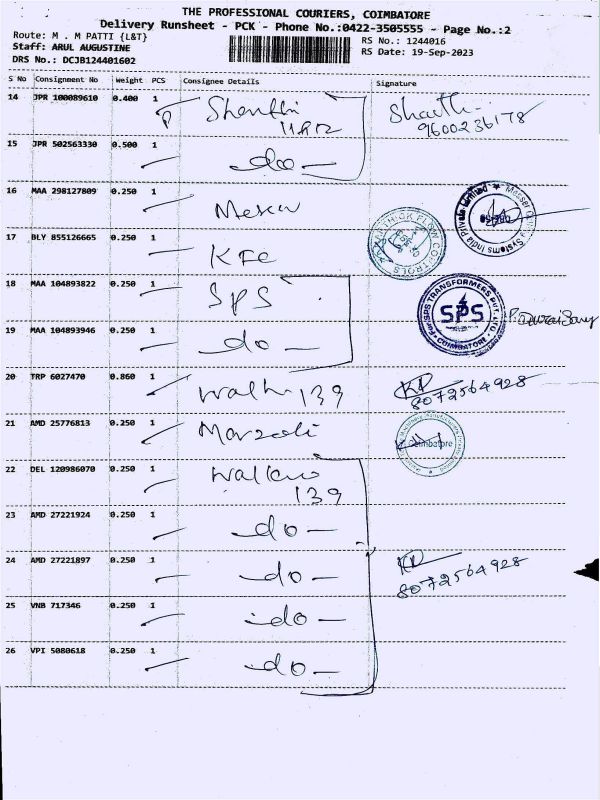 THE PROFESSIONAL COURIERS, COIMBATORE
Delivery Runsheet - PCK - Phone No.:0422-3505555 - Page No.:2
Route: M . M PATTI {L&T}
RS No.: 1244016
Staff: ARUL AUGUSTINE
RS Date: 19-Sep-2023
DRS No.: DCJB124401602
S No Consignment No Weight PCS Consignee Details Signature
14 JPR 100089610 0.400 1
9600236178
15 JPR 502563330 0.500 1 do
16 MAA 298127809 0.250 1
17 BLY 855126665 0.250 1
FLOW CONTROLS
18 MAA 104893822 0.250 1 SPS
For SPS TRANSFORMERS PVT. LTD.
SPS
COIMBATORE
19 MAA 104893946 0.250 1 do
20 TRP 6027470 0.860 1 139
8072564928
21 AMD 25776813 0.250 1
Coimbatore
22 DEL 120986070 0.250 1
139
23 AMD 27221924 0.250 1 do
24 AMD 27221897 0.250 1 do
8072564928
25 VNB 717346 0.250 1 do
26 VPI 5080618 0.250 1 do